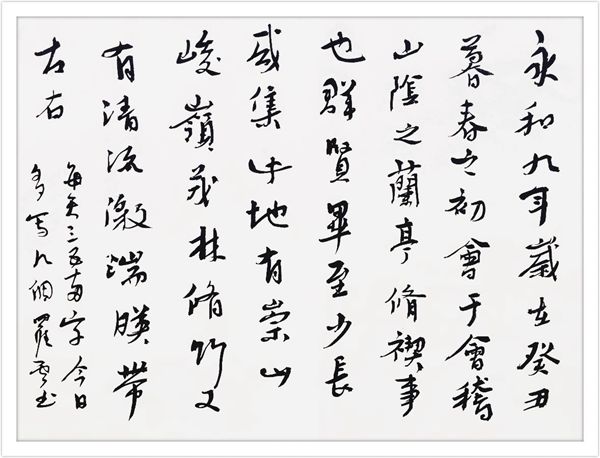 永和九年歲在癸丑
暮春之初會于會稽
山陰之蘭亭脩禊事
也群賢畢至少長
咸集此地有崇山
峻嶺茂林脩竹又
有清流激湍暎帶
左右
每天三五字今日
多写几個羅书